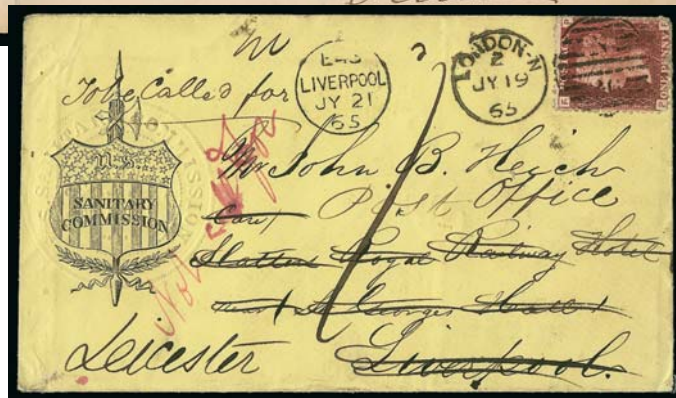 To be Called for
E43
LIVERPOOL
JY 21
65
LONDON-N
2
JY 19
65
ONE PENNY
U.S.
SANITARY
COMMISSION
Mr John B. Heich
Post Office
Care
Hatton Royal Railway Hotel
near St Georges Hall
Leicester Liverpool.
1